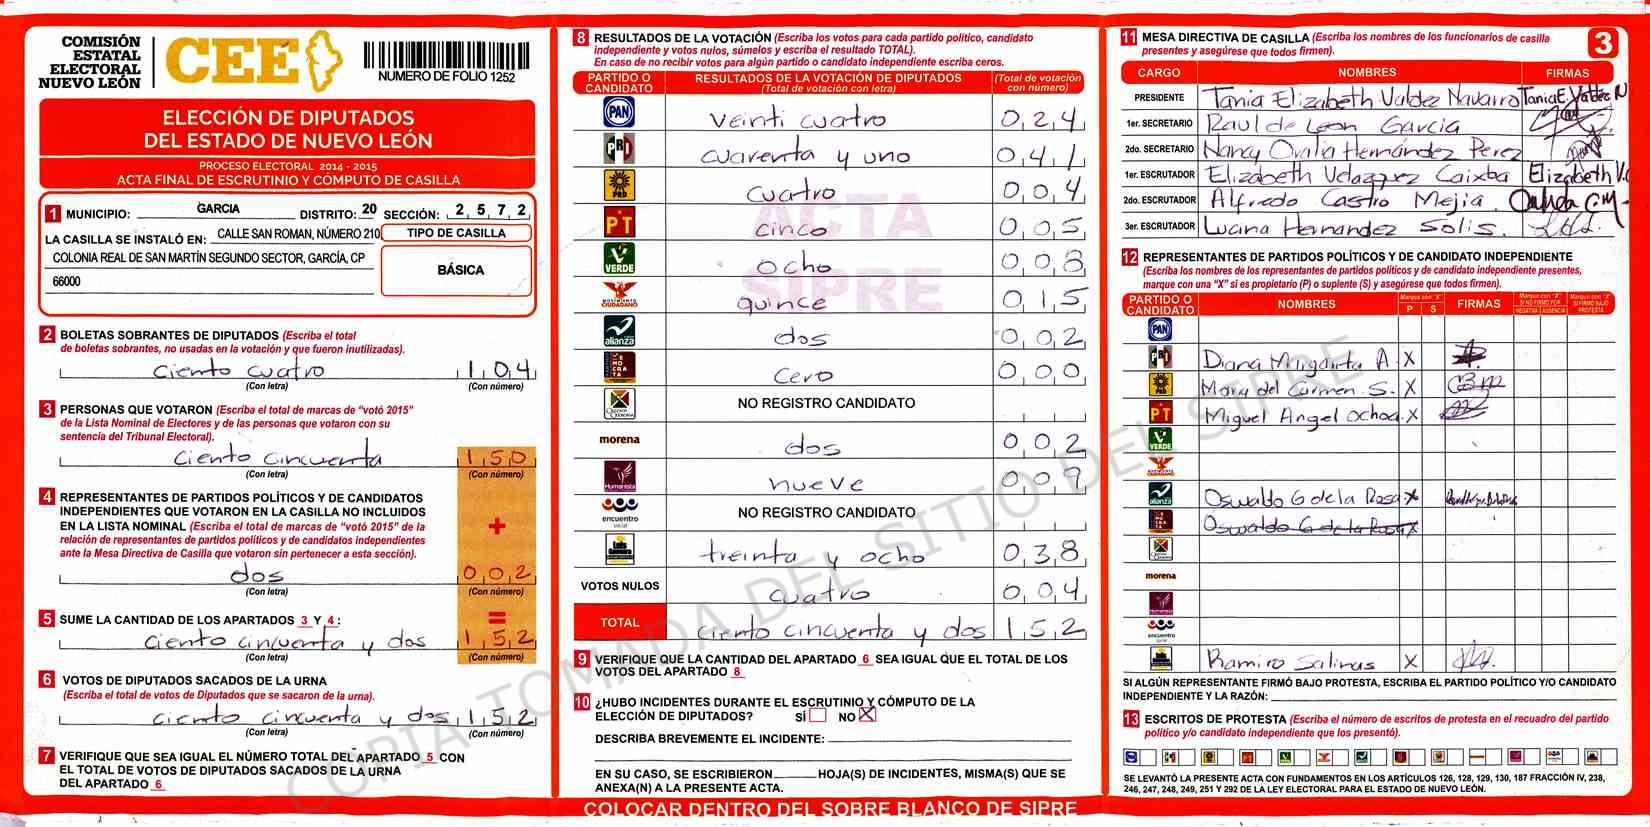 COMISIÓN
ESTATAL
ELECTORAL
NUEVO LEÓN
CEE
NUMERO DE FOLIO 1252
ELECCIÓN DE DIPUTADOS
DEL ESTADO DE NUEVO LEÓN
PROCESO ELECTORAL 2014 - 2015
ACTA FINAL DE ESCRUTINIO Y CÓMPUTO DE CASILLA
1 MUNICIPIO: GARCIA DISTRITO: 20 SECCIÓN: 2 5 7 2
LA CASILLA SE INSTALÓ EN: CALLE SAN ROMAN, NÚMERO 210
COLONIA REAL DE SAN MARTÍN SEGUNDO SECTOR, GARCÍA, CP
66000
TIPO DE CASILLA
BÁSICA
2 BOLETAS SOBRANTES DE DIPUTADOS (Escriba el total
de boletas sobrantes, no usadas en la votación y que fueron inutilizadas).
ciento cuatro 1 0 4
(Con letra) (Con número)
3 PERSONAS QUE VOTARON (Escriba el total de marcas de “votó 2015”
de la Lista Nominal de Electores y de las personas que votaron con su
sentencia del Tribunal Electoral).
ciento cincuenta 1 5 0
(Con letra) (Con número)
4 REPRESENTANTES DE PARTIDOS POLÍTICOS Y DE CANDIDATOS
INDEPENDIENTES QUE VOTARON EN LA CASILLA NO INCLUIDOS
EN LA LISTA NOMINAL (Escriba el total de marcas de “votó 2015” de la
relación de representantes de partidos políticos y de candidatos independientes
ante la Mesa Directiva de Casilla que votaron sin pertenecer a esta sección).
+
dos 0 0 2
(Con letra) (Con número)
=
5 SUME LA CANTIDAD DE LOS APARTADOS 3 Y 4:
ciento cincuenta y dos 1 5 2
(Con letra) (Con número)
6 VOTOS DE DIPUTADOS SACADOS DE LA URNA
(Escriba el total de votos de Diputados que se sacaron de la urna).
ciento cincuenta y dos 1 5 2
(Con letra) (Con número)
7 VERIFIQUE QUE SEA IGUAL EL NÚMERO TOTAL DEL APARTADO 5 CON
EL TOTAL DE VOTOS DE DIPUTADOS SACADOS DE LA URNA
DEL APARTADO 6
8 RESULTADOS DE LA VOTACIÓN (Escriba los votos para cada partido político, candidato
independiente y votos nulos, súmelos y escriba el resultado TOTAL).
En caso de no recibir votos para algún partido o candidato independiente escriba ceros.
PARTIDO O CANDIDATO RESULTADOS DE LA VOTACIÓN DE DIPUTADOS (Total de votación con letra) (Total de votación con número)
PAN veinti cuatro 0 2 4
PRD cuarenta y uno 0 4 1
PRD cuatro 0 0 4
PT cinco 0 0 5
VERDE ocho 0 0 8
MOVIMIENTO CIUDADANO quince 0 1 5
alianza dos 0 0 2
DEMOCRATA cero 0 0 0
NO REGISTRO CANDIDATO
morena dos 0 0 2
Humanista nueve 0 0 9
encuentro social NO REGISTRO CANDIDATO
treinta y ocho 0 3 8
VOTOS NULOS cuatro 0 0 4
TOTAL ciento cincuenta y dos 1 5 2
ACTA
SIPRE
9 VERIFIQUE QUE LA CANTIDAD DEL APARTADO 6 SEA IGUAL QUE EL TOTAL DE LOS
VOTOS DEL APARTADO 8
10 ¿HUBO INCIDENTES DURANTE EL ESCRUTINIO Y CÓMPUTO DE LA
ELECCIÓN DE DIPUTADOS? SÍ NO X
DESCRIBA BREVEMENTE EL INCIDENTE:
EN SU CASO, SE ESCRIBIERON HOJA(S) DE INCIDENTES, MISMA(S) QUE SE
ANEXA(N) A LA PRESENTE ACTA.
COLOCAR DENTRO DEL SOBRE BLANCO DE SIPRE
11 MESA DIRECTIVA DE CASILLA (Escriba los nombres de los funcionarios de casilla
presentes y asegúrese que todos firmen).
3
CARGO NOMBRES FIRMAS
PRESIDENTE Tania Elizabeth Valdez Navarro Tania E. Valdez N
1er. SECRETARIO Raul de Leon Garcia
2do. SECRETARIO Nancy Oralia Hernández Perez
1er. ESCRUTADOR Elizabeth Velazquez Caixba Elizabeth V.C
2do. ESCRUTADOR Alfredo Castro Mejia
3er. ESCRUTADOR Lucina Hernandez Solis.
12 REPRESENTANTES DE PARTIDOS POLÍTICOS Y DE CANDIDATO INDEPENDIENTE
(Escriba los nombres de los representantes de partidos políticos y de candidato independiente presentes,
marque con una “X” si es propietario (P) o suplente (S) y asegúrese que todos firmen).
PARTIDO O CANDIDATO NOMBRES Marque con “X” P S FIRMAS Marque con “X” SI NO FIRMÓ POR NEGATIVA AUSENCIA Marque con “X” SI FIRMÓ BAJO PROTESTA
PAN
PRD Diana Margarita A. X
PRD Maria del Carmen S. X
PT Miguel Angel Ochoa X
VERDE
alianza Oswaldo G de la Rosa X
Oswaldo G de la Rosa X
morena
encuentro
Ramiro Salinas X
SI ALGÚN REPRESENTANTE FIRMÓ BAJO PROTESTA, ESCRIBA EL PARTIDO POLÍTICO Y/O CANDIDATO
INDEPENDIENTE Y LA RAZÓN:
13 ESCRITOS DE PROTESTA (Escriba el número de escritos de protesta en el recuadro del partido
político y/o candidato independiente que los presentó).
SE LEVANTÓ LA PRESENTE ACTA CON FUNDAMENTOS EN LOS ARTÍCULOS 126, 128, 129, 130, 187 FRACCIÓN IV, 238,
246, 247, 248, 249, 251 Y 292 DE LA LEY ELECTORAL PARA EL ESTADO DE NUEVO LEÓN.
COPIA TOMADA DEL SITIO DEL SIPRE